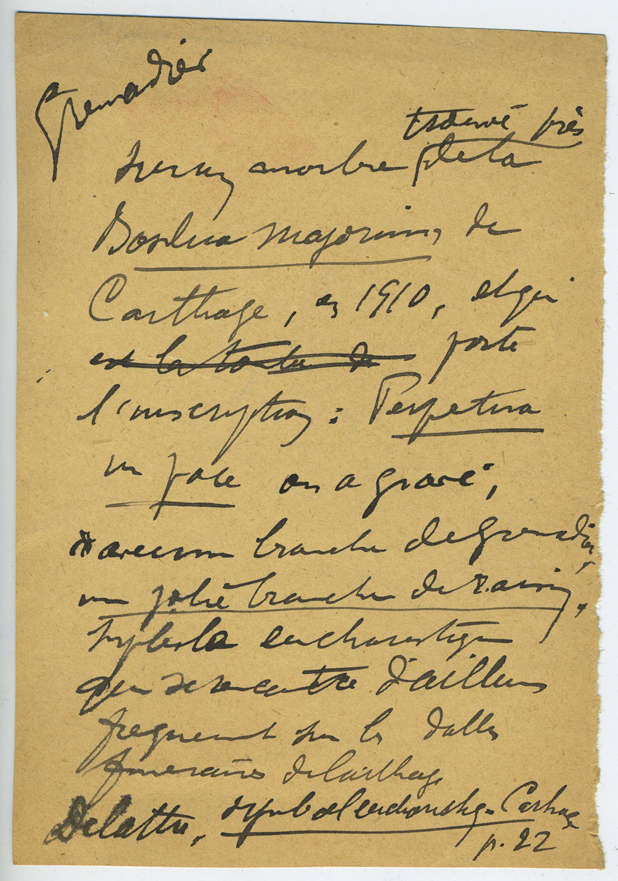 Grenadier
trouvé près
sur un marbre de la
Basilica Majorum, de
Carthage, en 1910, et qui
est la tombe de porte
l'inscription : Perpetua
in pace on a gravé,
avec une branche de grenadier,
une jolie branche de raisin,
symbole eucharistique
qui se rencontre d'ailleurs
fréquemment sur les dalles
funéraires de Carthage
Delattre, symboles eucharistiq. Carthage
p. 22